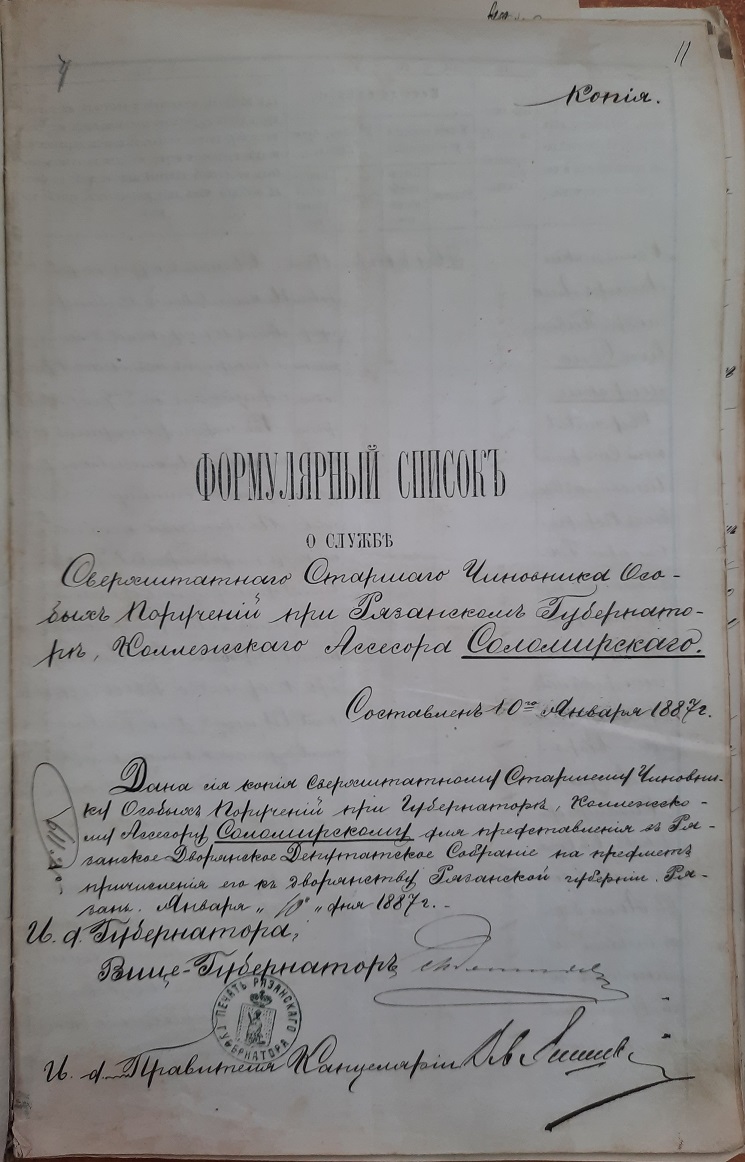 11
Копія.
ФОРМУЛЯРНЫЙ СПИСОКЪ
О СЛУЖБѢ
Сверхштатнаго Старшаго Чиновника Осо-
быхъ Порученій при Рязанскомъ Губернато-
рѣ, Коллежскаго Ассесора Соломирскаго.
Составленъ 10го Января 1887 г.
Дана сія копія сверхштатному Старшему Чиновни-
ку Особыхъ Порученій при Губернаторѣ, Коллежско-
му Ассесору Соломирскому для представленія въ Ря-
занское Дворянское Депутатское Собраніе на предметъ
причисленія его къ дворянству Рязанской губерніи. Ря-
зань. Января „10" дня 1887 г. -
И. д. Губернатора,
Вице-Губернаторъ
ПЕЧАТЬ РЯЗАНСКАГО ГУБЕРНАТОРА
И. д. Правителя Канцеляріи